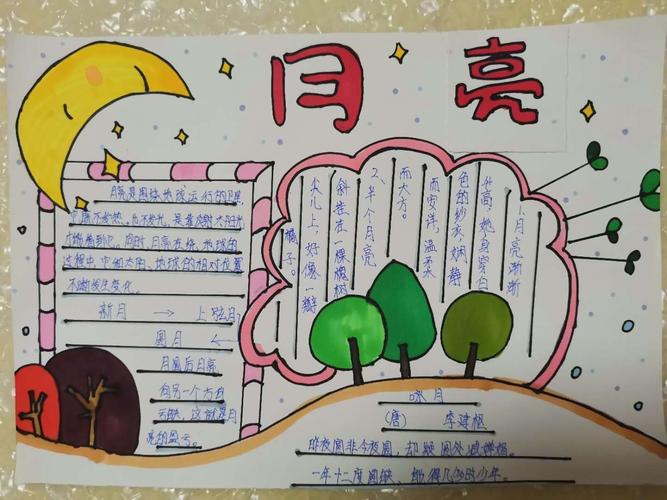 月亮
月亮是围绕地球运行的卫星
它既不发热,也不发光,是靠反射太阳光
才能看到它。同时,月亮在绕地球的
过程中,它和太阳、地球的相对位置
不断发生变化。
新月 → 上弦月
圆月 ←
月圆后月亮
向另一个方向
亏缺,这就是月
亮的盈亏。
1.月亮渐渐
升高,她身穿白
色的纱衣,娴静
而安详,温柔
而大方。
2、半个月亮
斜挂在一棵槐树
尖儿上,好像一瓣
橘子。
咏月
(唐) 李建枢
昨夜圆非今夜圆,却疑圆处减婵娟。
一年十二度圆缺,能得几多时少年。